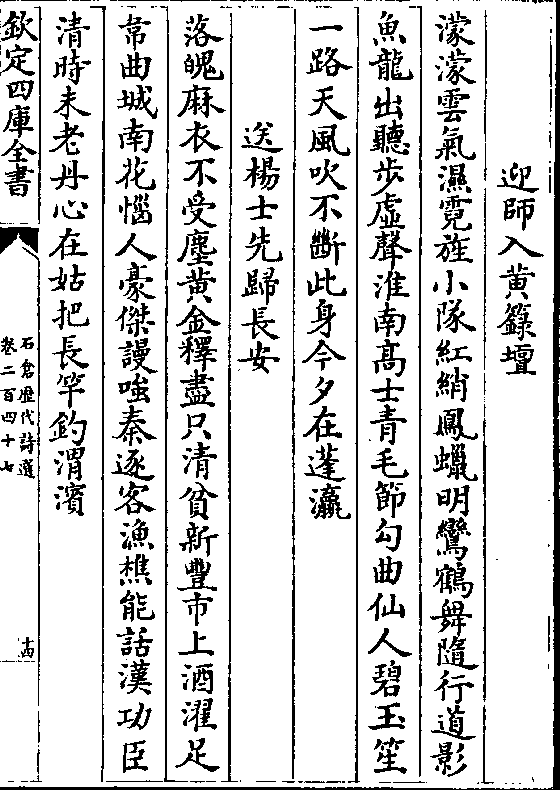 迎師入黄籙壇
濛濛雲氣濕霓旌小隊紅綃鳳蠟明鸞鶴舞隨行道影
魚龍出聽步虚聲淮南髙士青毛節勾曲仙人碧玉笙
一路天風吹不斷此身今夕在蓬瀛
送楊士先歸長安
落魄麻衣不受塵黄金釋盡只清貧新豐市上酒濯足
韋曲城南花惱人豪傑謾嗤秦逐客漁樵能話漢功臣
清時未老丹心在姑把長竿釣渭濱
欽定四庫全書
石倉歴代詩選
卷二百四十七
十四